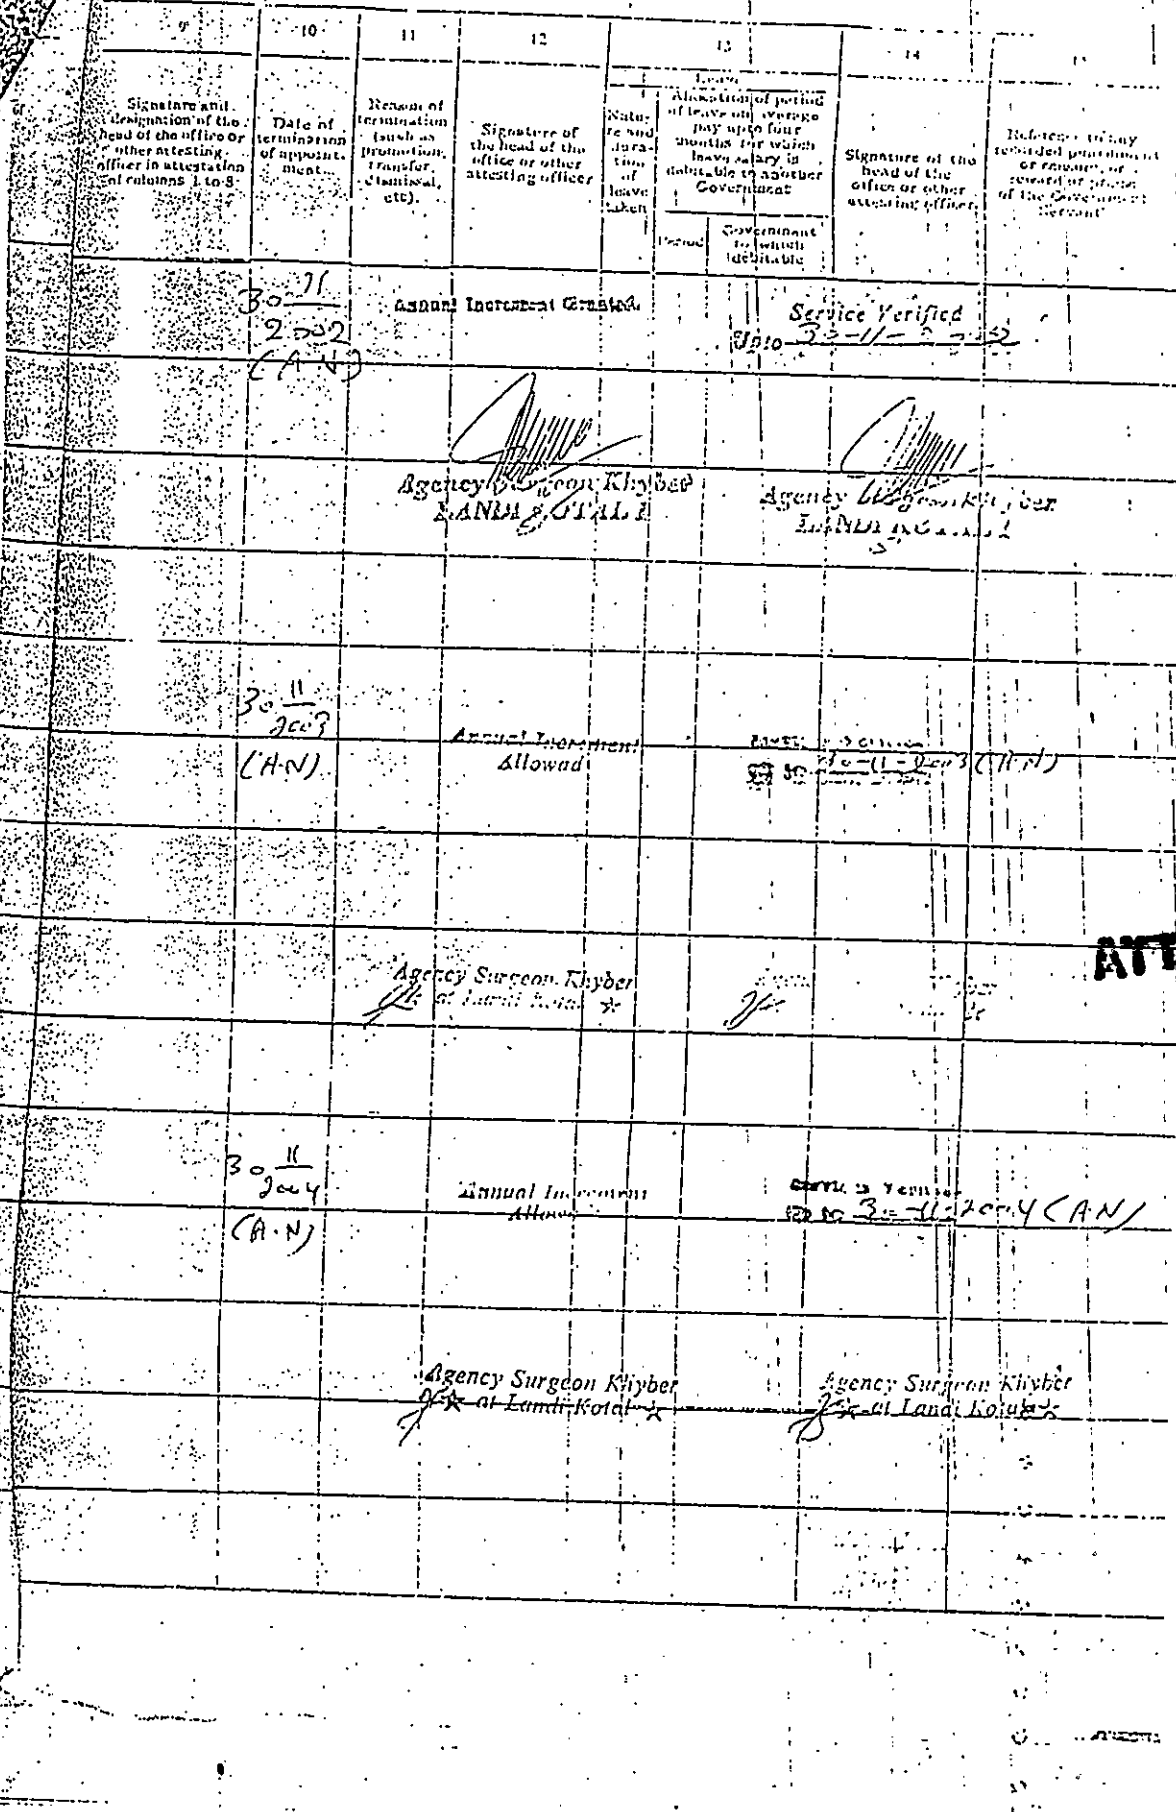 9 10 11 12 13 14 15
Signature and
designation of the
head of the office or
other attesting
officer in attestation
of columns 1 to 8
Date of
termination
of appoint-
ment.
Reason of
termination
(such as
promotion,
transfer,
dismissal,
etc).
Signature of
the head of the
office or other
attesting officer
Leave
Natu-
re and
dura-
tion
of
leave
taken
Allocation of period
of leave on average
pay upto four
months for which
leave salary is
debitable to another
Government
Period
Government
to which
debitable
Signature of the
head of the
office or other
attesting officer
Reference to any
recorded punishment
or censure, or
reward or praise
of the Government
Servant
30 11
2002
(A.N)
Annual Increment Granted.
Service Verified
Upto 30-11-2002
Agency Surgeon Khyber
LANDI KOTAL
Agency Surgeon Khyber
LANDI KOTAL
30 11
2003
(A.N)
Annual Increment
Allowed
30-11-2003 (A.N)
Agency Surgeon Khyber
at Landi Kotal
ATT
30 11
2004
(A.N)
Annual Increment
Allowed
30-11-2004 (A.N)
Agency Surgeon Khyber
at Landi Kotal
Agency Surgeon Khyber
at Landi Kotal